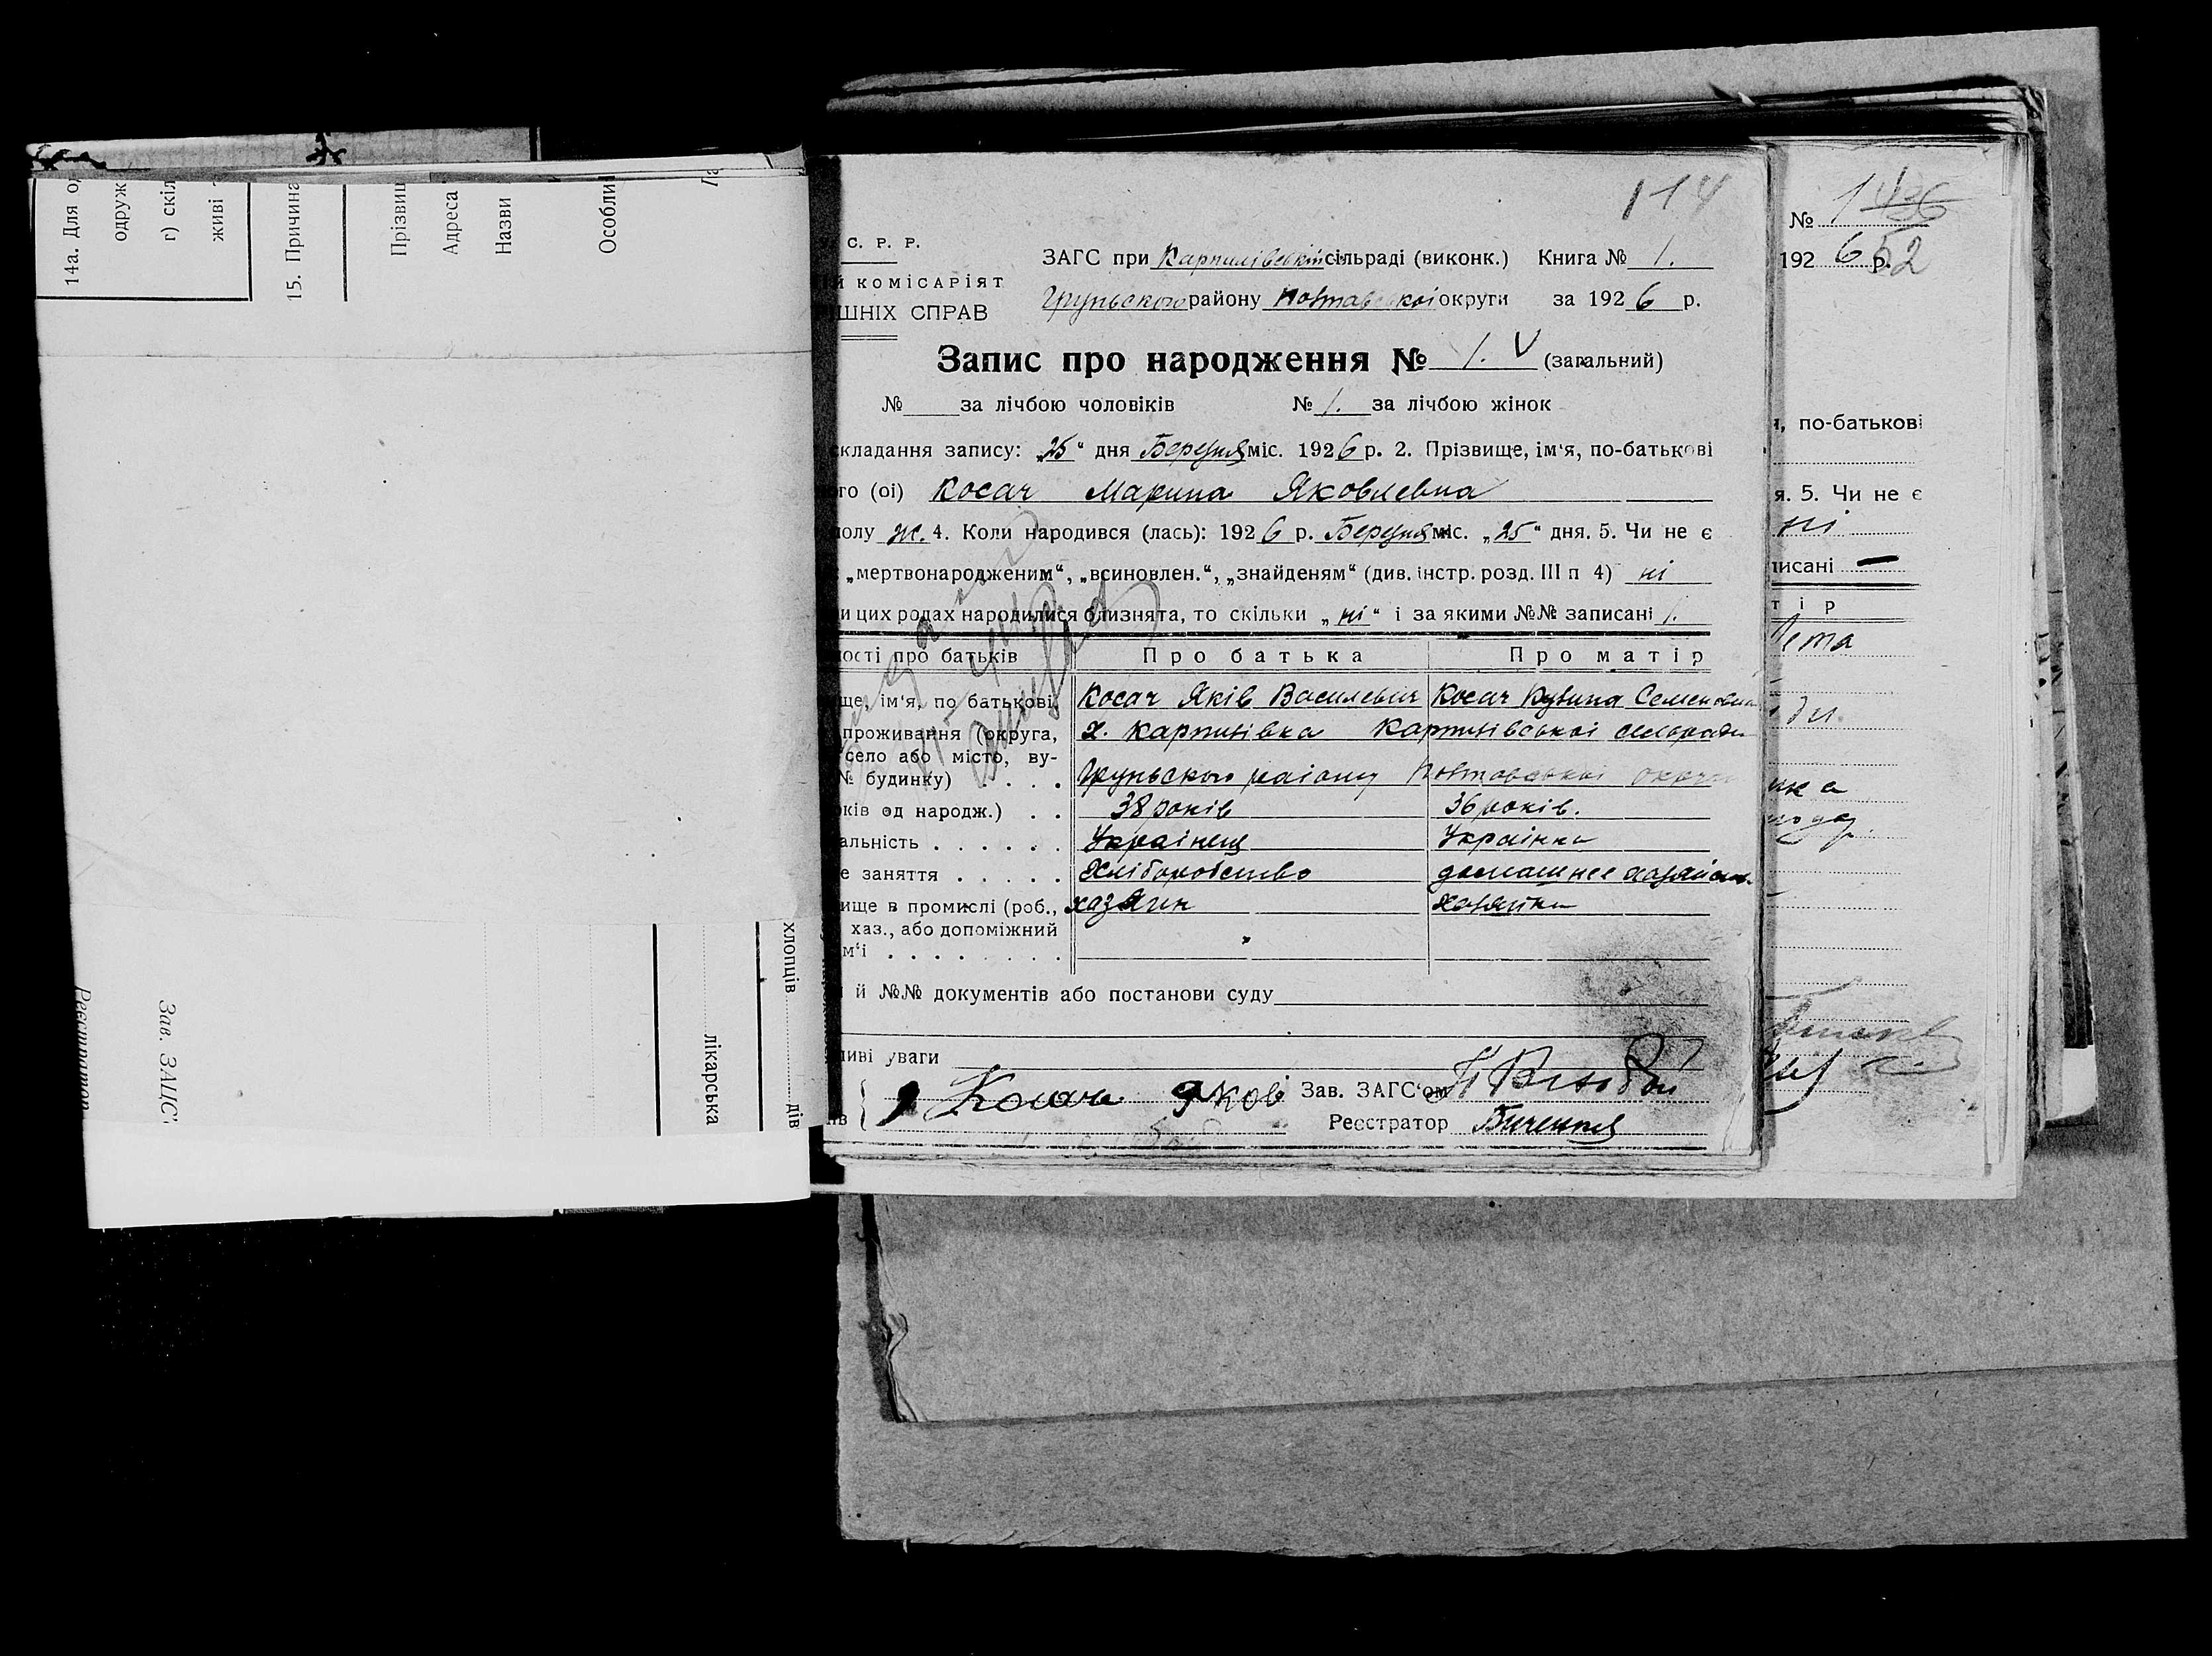 14а. Для о
одруж
г) скіл
живі
15. Причина
Прізвищ
Адреса
Назви
Особли
хлопців
дів
лікарська
Зав. ЗАГС
Реєстратор
114
С. Р. Р.
КОМІСАРІЯТ
ШНІХ СПРАВ
ЗАГС при Карпилівській сільраді (виконк.) Книга № 1.
Грунського району Полтавської округи за 1926 р.
Запис про народження № 1. V (загальний)
№ за лічбою чоловіків № 1. за лічбою жінок
складання запису: „25“ дня Березня міс. 1926 р. 2. Прізвище, ім‘я, по-батькові
го (ої) Косач Марина Яковлевна
полу ж. 4. Коли народився (лась): 1926 р. Березня міс. „25“ дня. 5. Чи не є
„мертвонародженим“, „всиновлен.“, „знайденям“ (див. інстр. розд. III п 4) ні
и цих родах народилися близнята, то скільки „ні“ і за якими №№ записані 1.
ості про батьків Про батька Про матір
ще, ім‘я, по батькові Косач Яків Василевич Косач Семеновна
проживання (округа, х. Карпилівка Карпилівської сільради
село або місто, ву-
№ будинку) . . . . Грунського району Полтавської округи
ків од народж.) . . 38 років 36 років.
альність . . . . . . Українец Українка
е заняття . . . . . Хліборобство домашнее хазяйст.
ище в промислі (роб., хазяин хазяйка
хаз., або допоміжний
м‘ї . . . . . . . .
й №№ документів або постанови суду
ливі уваги
Косач Яков Зав. ЗАГС‘ом
ів Реєстратор
№ 1 436
1926 р. 52
, по-батькові
я. 5. Чи не є
ні
писані —
тір